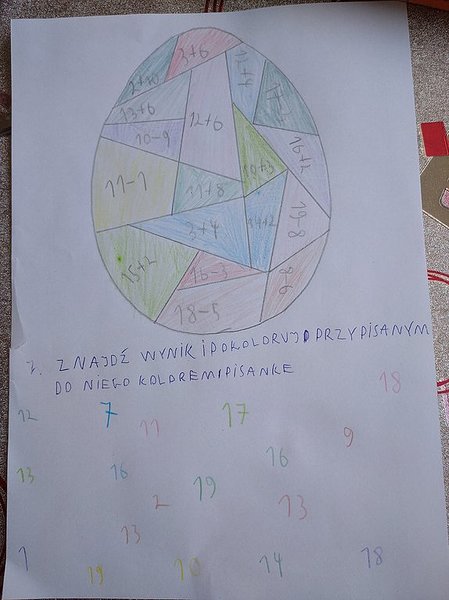 3+6
2+10
12+4
17-2
13+6
12+6
10-9
16+2
10+3
11-1
11+8
19-8
3+4
14+2
15+2
16-3
8-6
18-5
7. ZNAJDŹ WYNIK I POKOLORUJ PRZYPISANYM
DO NIEGO KOLOREM PISANKE
18
12 7 11 17
9
13 16 19 16
2 13
13
1 19 10 14 18